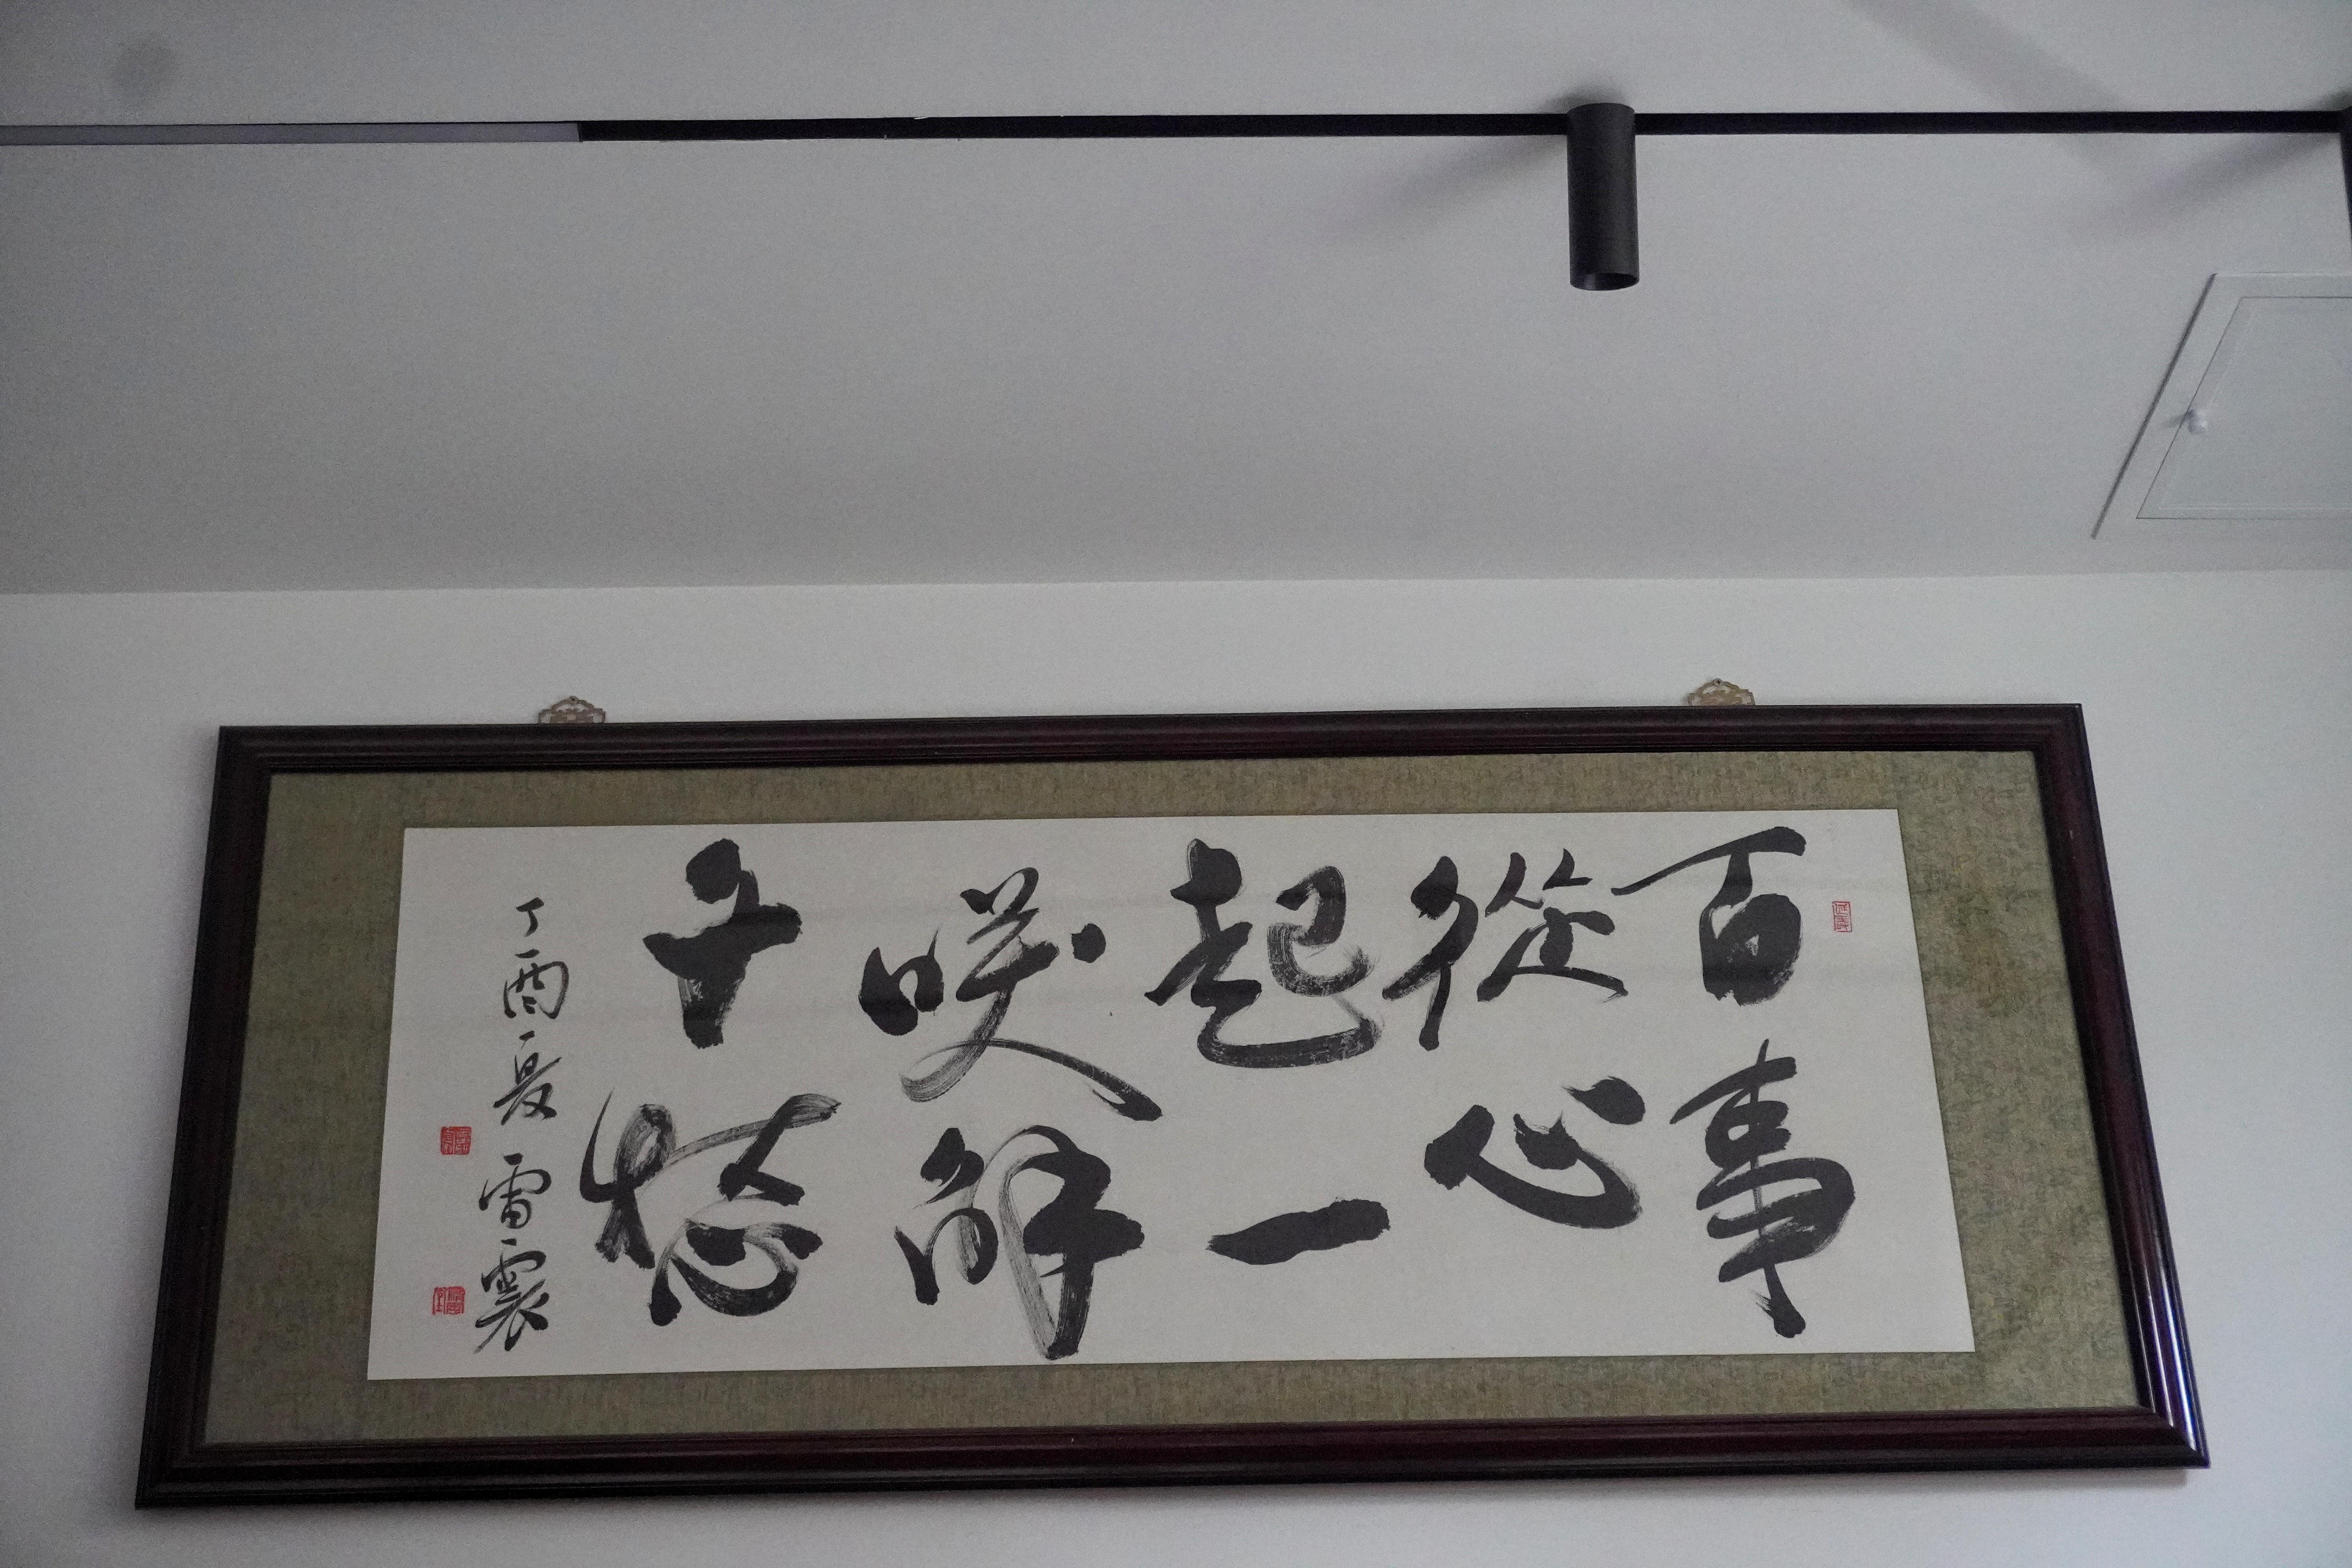 百事
從心
起一
咲解
千愁
丁酉夏雷震